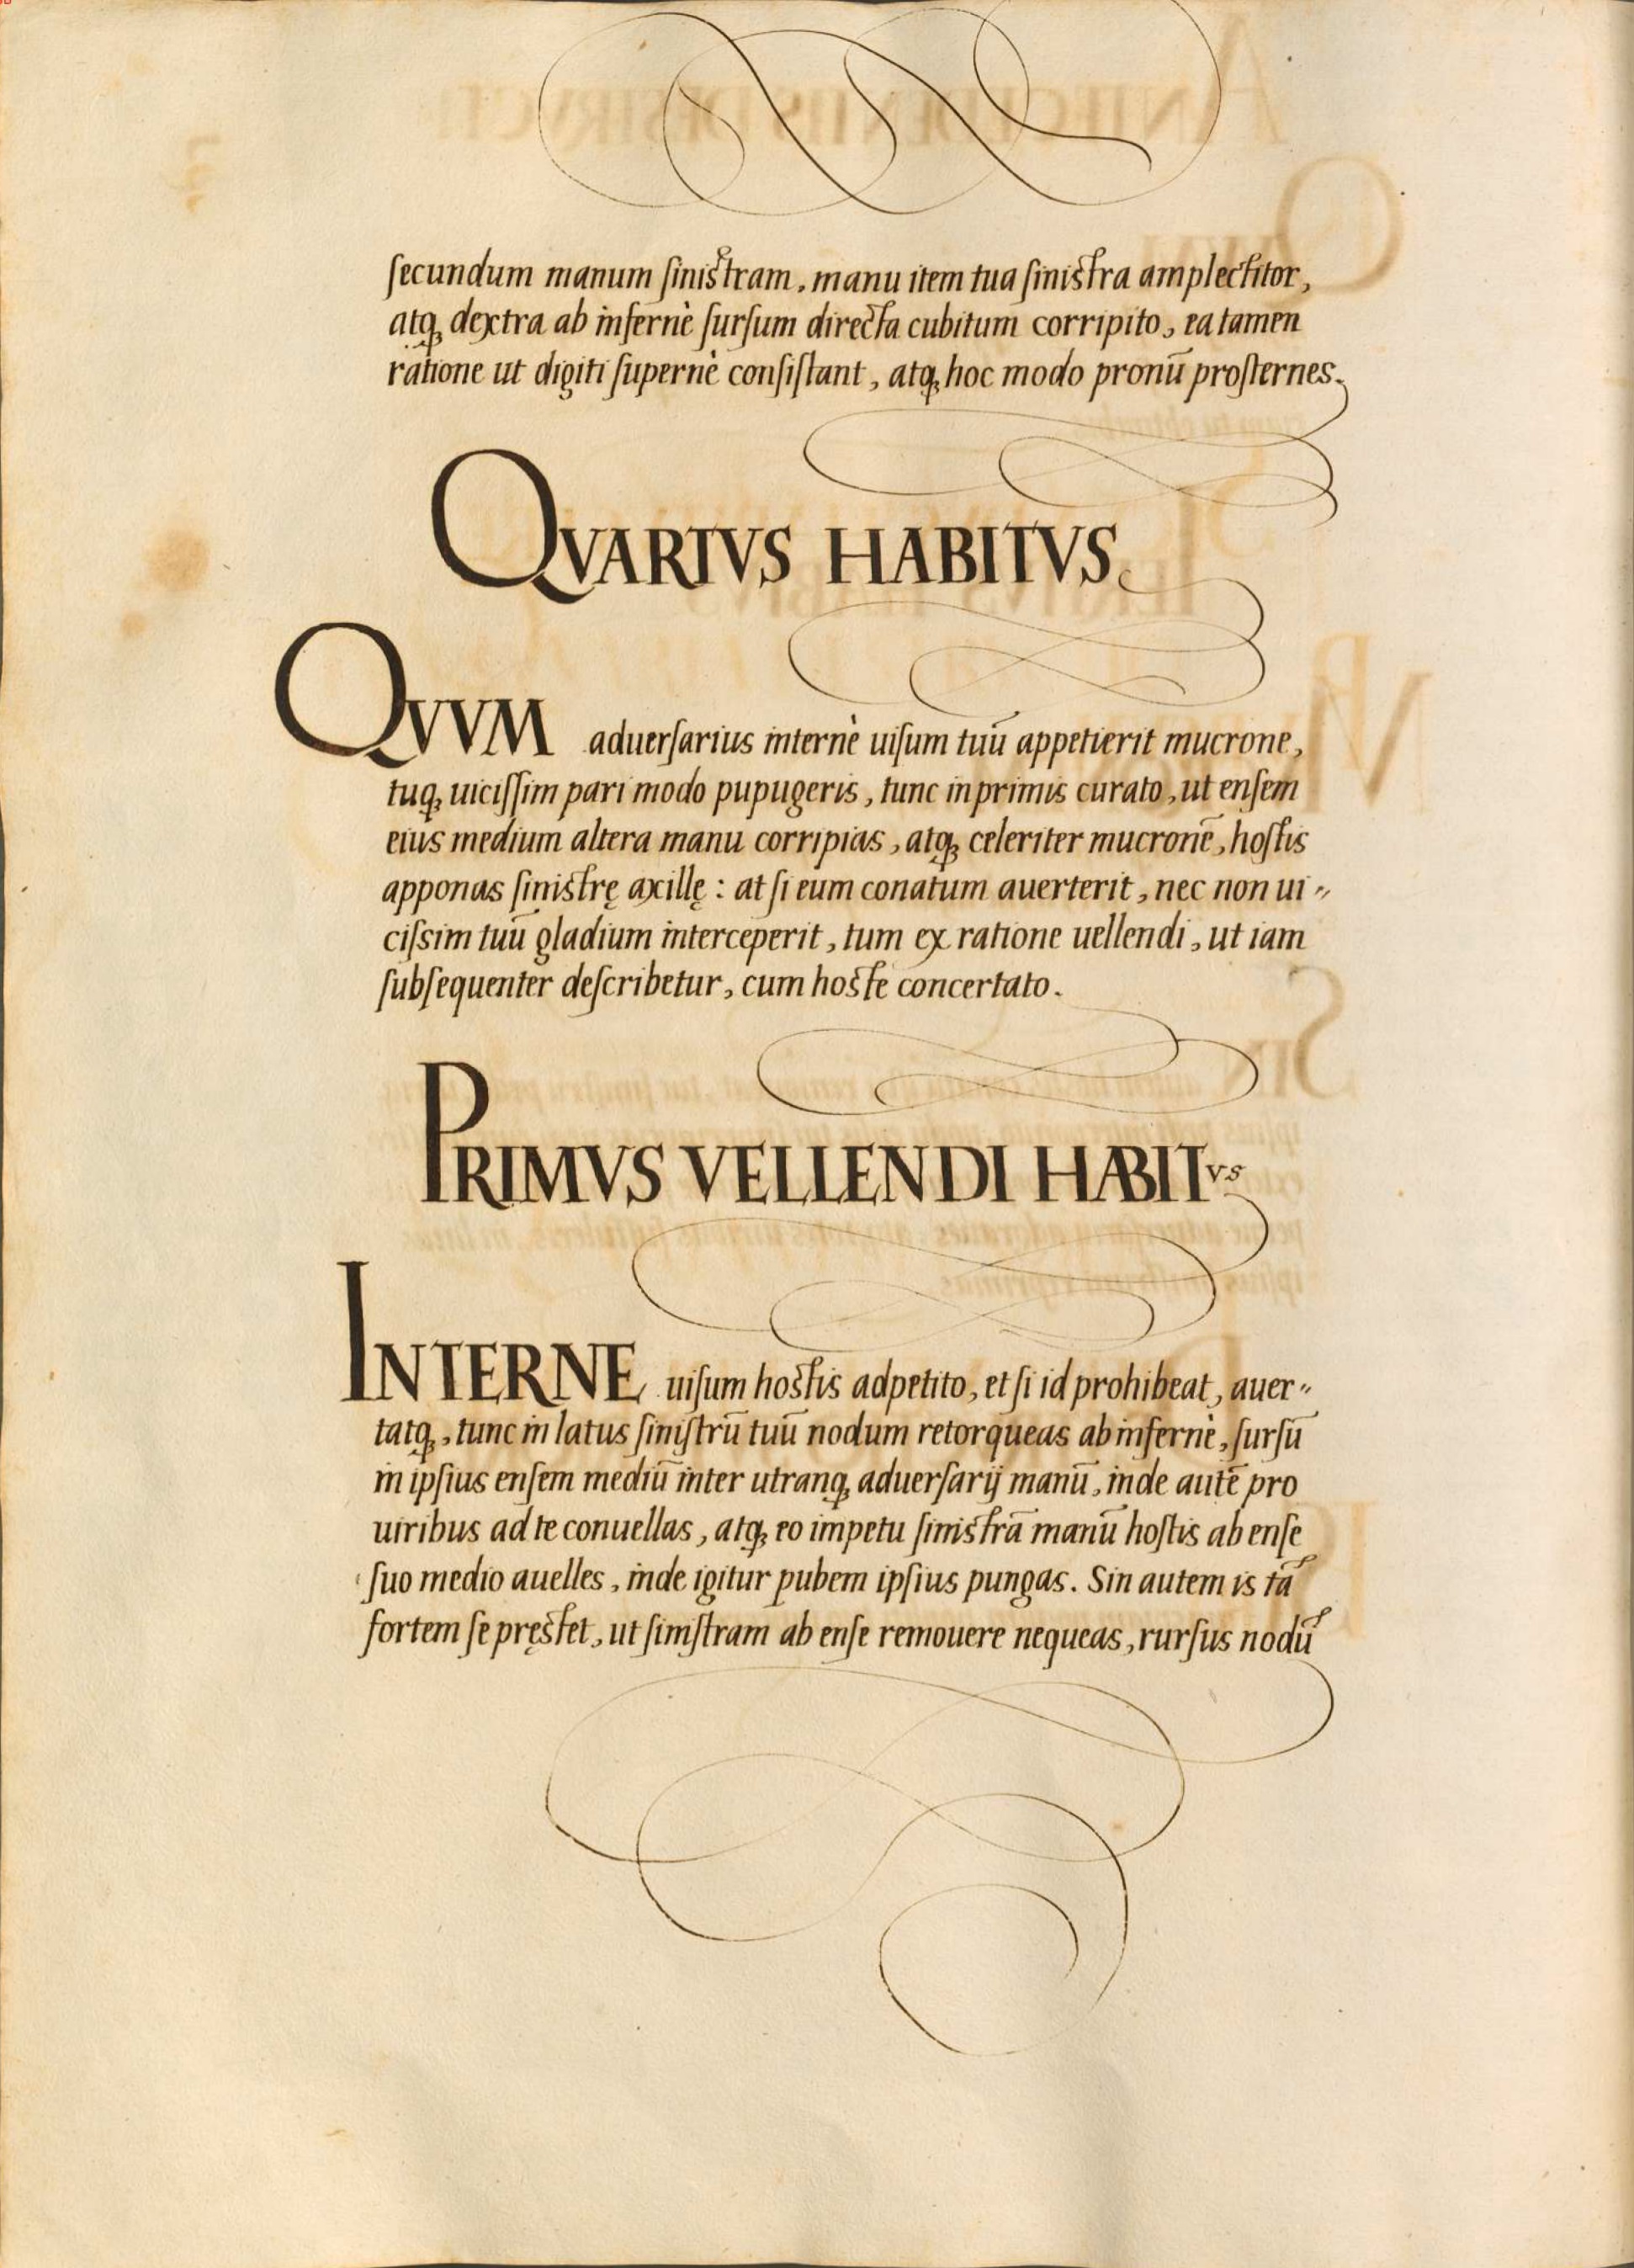 ſecundum manum ſiniſtram, manu item tua ſiniſtra amplectitor,
atq; dextra ab infernè ſurſum directa cubitum corripito, ea tamen
ratione ut digiti ſupernè conſiſtant, atq; hoc modo pronū proſternes.
QVARTVS HABITVS.
QVVM aduerſarius internè uiſum tuū appetierit mucrone,
tuq; uiciſſim pari modo pupugeris, tunc inprimis curato, ut enſem
eius medium altera manu corripias, atq; celeriter mucronē, hoſtis
apponas ſiniſtrę axillę: at ſi eum conatum auerterit, nec non ui〃
ciſsim tuū gladium interceperit, tum ex ratione uellendi, ut iam
ſubſequenter deſcribetur, cum hoſte concertato.
PRIMVS VELLENDI HABITVS
INTERNE uiſum hoſtis adpetito, et ſi id prohibeat, auer〃
tatq;, tunc in latus ſiniſtrū tuū nodum retorqueas ab infernè, ſurſū
in ipſius enſem mediū inter utranq; aduerſarij manū, inde autē pro
uiribus ad te conuellas, atq; eo impetu ſiniſtrā manū hoſtis ab enſe
ſuo medio auelles, inde igitur pubem ipſius pungas. Sin autem is tā
fortem ſe pręſtet, ut ſiniſtram ab enſe remouere nequeas, rurſus nodū